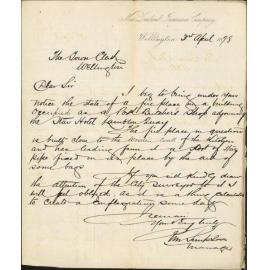 New Zealand Insurance Company
Wellington 3rd April 1898
The Town Clerk
Wellington
Dear Sir
I beg to bring under your
notice the state of a fire place in a building
occupied as a Butchers Shop adjoining
the Star Hotel Lambton Quay
The fire place in question
is built close to the wooden wall of the Kitchen
and has leading from it a sort of
pipe fixed in its place by the aid of
some bags
If you will kindly draw
the attention of the City Surveyor to it I
will feel obliged, as it is a thing calculated
to create a Conflagration some day
I remain
Yours truly
Manager